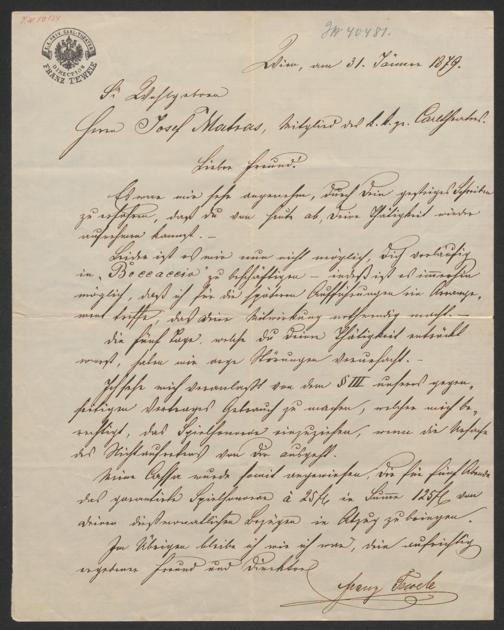 J.N. 40481.
K.K. PRIV. CARL-THEATER
DIRECTION
FRANZ TEWELE
Wien, am 31. Jänner 1879.
Sr Wohlgeboren
Herrn Josef Matras, Mitglied des k. k. pr. Carltheaters.
Lieber Freund!
Es war mir sehr angenehm, durch Dein gestriges Schreiben
zu erfahren, daß Du von heute ab, Deine Thätigkeit wieder
aufnehmen kannst. –
Leider ist es mir nun nicht möglich, Dich vorläufig
in „Boccaccio“ zu beschäftigen – indeß ist es immerhin
möglich, daß ich für die spätern Aufführungen ein Arrange-
ment treffe, das Deine Mitwirkung nothwendig macht. –
Die fünf Tage, welche Du Deiner Thätigkeit entrückt
warst, haben mir arge Störungen verursacht. –
Ich sehe mich veranlaßt von dem § III unseres gegen-
seitigen Vertrages Gebrauch zu machen, welcher mich be-
rechtigt, das Spielhonorar einzuziehen, wenn die Ursache
des Nichtauftretens von Dir ausgeht.
Meine Cassa wurde somit angewiesen, die für fünf Abende
das garantirte Spielhonorar à 25 fl, in Summe 125 fl von
Deinen dießmonatlichen Bezügen in Abzug zu bringen.
Im Übrigen bleibe ich wie ich war, Dein aufrichtig
ergebener Freund und Direktor
Franz Tewele